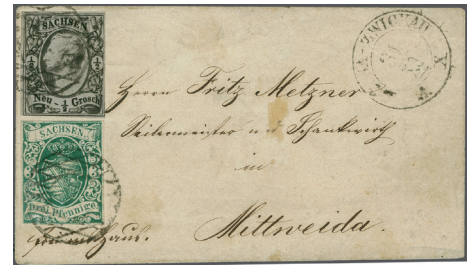 SACHSEN
½ ½
Neu-½-Grosch
SACHSEN.
3 3
Pfennige
ZWICKAU
Herrn Fritz Metzner
Seilermeister und Schankwirth
in
Mittweida.